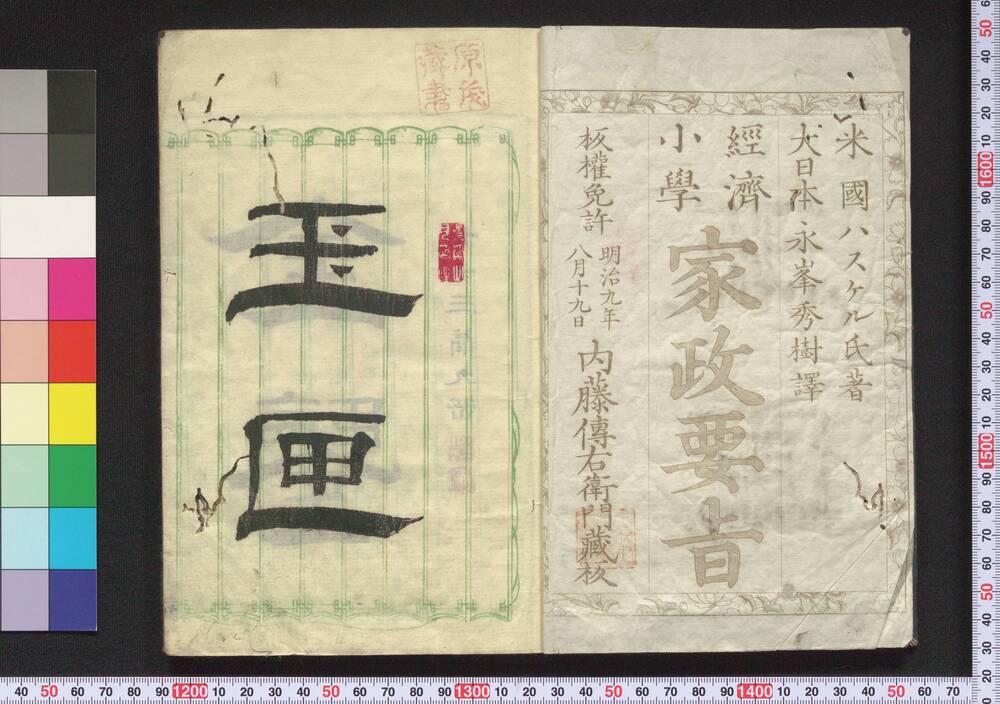 米國ハスケル氏著
大日本永峯秀樹譯
經濟
小學
家政要旨
板權免許
明治九年
八月十九日
内藤傳右衛門藏板
玉
匣